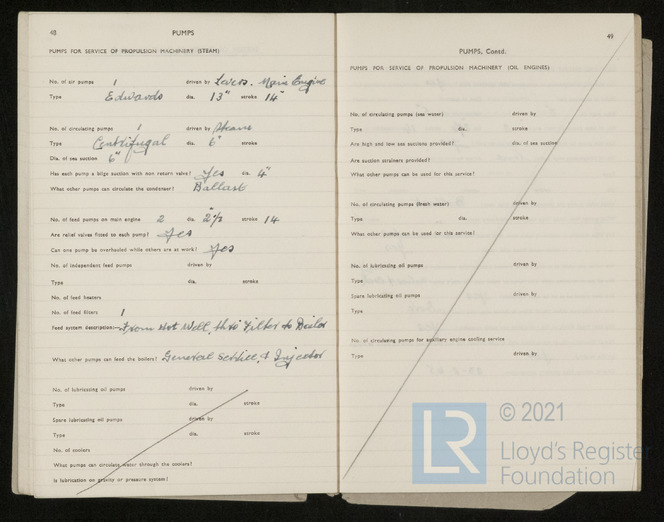 48
PUMPS
PUMPS FOR SERVICE OF PROPULSION MACHINERY (STEAM)
No. of air pumps 1 driven by Levers. Main Engine
Type Edwards dia. 13" stroke 14"
No. of circulating pumps 1 driven by Steam
Type Centrifugal dia. 6" stroke
Dia. of sea suction 6"
Has each pump a bilge suction with non return valve? Yes dia. 4"
What other pumps can circulate the condenser? Ballast
No. of feed pumps on main engine 2 dia. 2½" stroke 14
Are relief valves fitted to each pump? Yes
Can one pump be overhauled while others are at work? Yes
No. of independent feed pumps driven by
Type dia. stroke
No. of feed heaters
No. of feed filters 1
Feed system description:— From Hot Well, thro' Filter to Boiler
What other pumps can feed the boilers? General Service & Injector
No. of lubricating oil pumps driven by
Type dia. stroke
Spare lubricating oil pumps driven by
Type dia. stroke
No. of coolers
What pumps can circulate water through the coolers?
Is lubrication on gravity or pressure system?
49
PUMPS, Contd.
PUMPS FOR SERVICE OF PROPULSION MACHINERY (OIL ENGINES)
No. of circulating pumps (sea water) driven by
Type dia. stroke
Are high and low sea suctions provided? dia. of sea suction
Are suction strainers provided?
What other pumps can be used for this service?
No. of circulating pumps (fresh water) driven by
Type dia. stroke
What other pumps can be used for this service?
No. of lubricating oil pumps driven by
Type dia. stroke
Spare lubricating oil pumps driven by
Type stroke
No. of circulating pumps for auxiliary engine cooling service
Type driven by
LR
© 2021
Lloyd's Register
Foundation